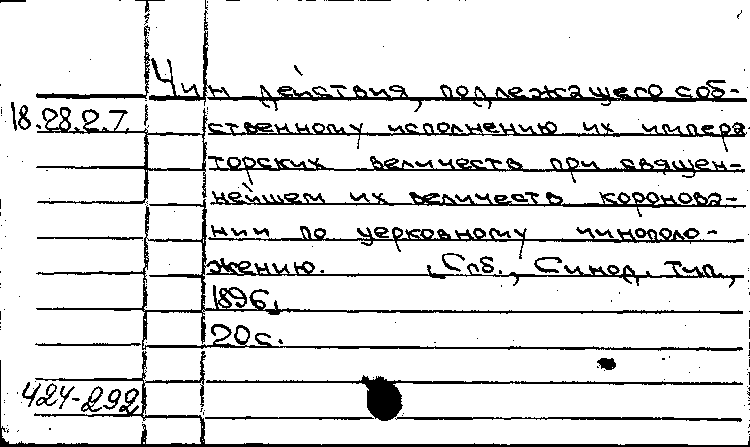 Чин действия, подлежащего соб-
18.28.2.7.
ственному исполнению их импера
торских величеств при священ-
нейшем их величеств коронова-
нии по церковному чинополо-
жению. [Спб., Синод. тип.,
1896]
20 с.
424-292